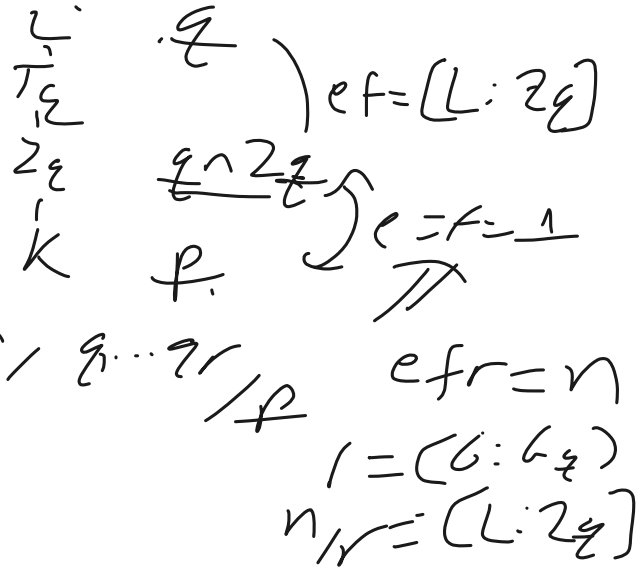 L q
T_q
Z_q q ∩ Z_q
K p.
ef = [L : Z_q]
e = f = 1
q_1 ... q_r / p
efr = n
r = (G : G_q)
n/r = [L : Z_q]